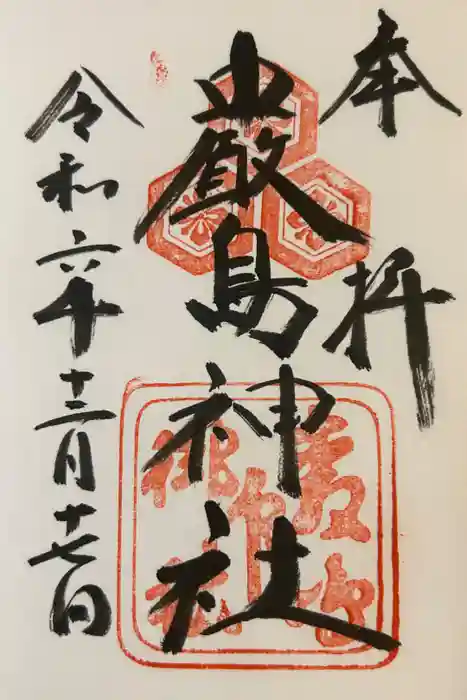 奉拝
厳島神社
令和六年十二月十七日